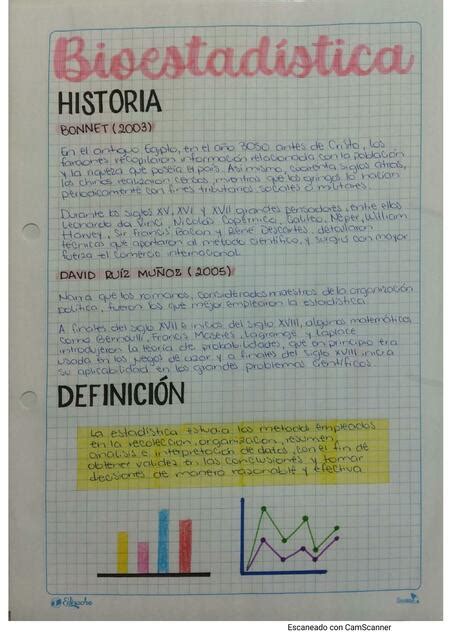 Bioestadística
HISTORIA
BONNET (2003)
En el antiguo Egipto, en el año 3050 antes de Cristo, los
faraones recopilaron información relacionada con la población
y la riqueza que poseía el país. Así mismo, cuarenta siglos atrás,
los chinos realizaron censos, mientras que los griegos lo hacían
periódicamente con fines tributarios, sociales o militares.
Durante los siglos XV, XVI y XVII grandes pensadores, entre ellos
Leonardo da Vinci, Nicolás Copérnico, Galileo, Neper, William
Harvey, Sir Francis Bacon y René Descartes, detallaron
técnicas que aportaron al método científico, y surgió con mayor
fuerza el comercio internacional.
DAVID RUÍZ MUÑOZ (2005)
Narra que los romanos, considerados maestros de la organización
política, fueron los que mejor emplearon la estadística
A finales del siglo XVII e inicios del siglo XVIII, algunos matemáticos
como Bernoulli, Francis Maseres, Lagrange y Laplace
introdujeron la teoría de probabilidades, que en principio era
usada en los juegos de azar y a finales del siglo XVIII inicia
su aplicabilidad en los grandes problemas científicos.
DEFINICIÓN
La estadística estudia los métodos empleados
en la recolección, organización, resumen,
análisis e interpretación de datos, con el fin de
obtener validez en las conclusiones y tomar
decisiones de manera razonable y efectiva
Escaneado con CamScanner